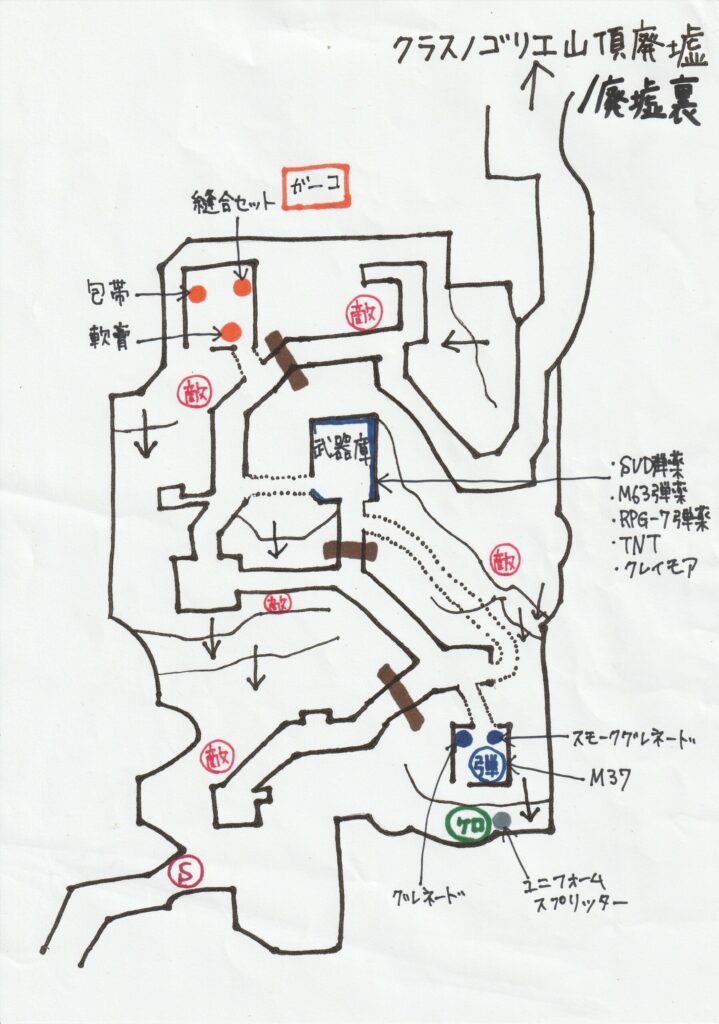 クラスノゴリエ山頂廃墟
/廃墟裏
ガーコ
縫合セット
包帯
軟膏
敵
敵
武器庫
・SVD弾薬
・M63弾薬
・RPG-7弾薬
・TNT
・クレイモア
敵
敵
敵
スモークグレネード
弾
M37
ケロ
S
グレネード
ユニフォーム
スプリッター